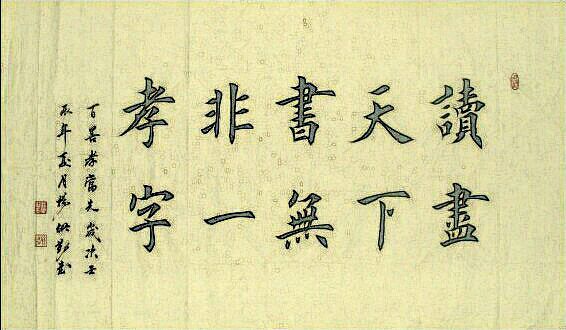 讀盡
天下
書無
非一
孝字
百善孝當先歲次壬
辰年夏月楊